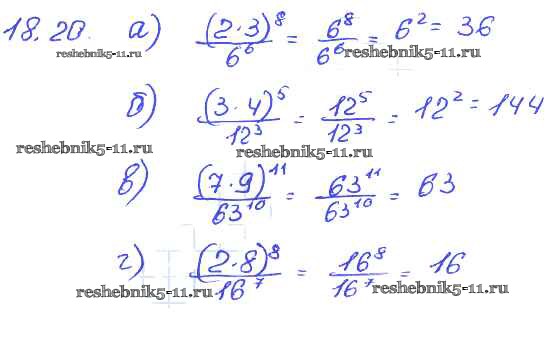 18.20. а) (2·3)^8 / 6^6 = 6^8 / 6^6 = 6^2 = 36
reshebnik5-11.ru reshebnik5-11.ru
б) (3·4)^5 / 12^3 = 12^5 / 12^3 = 12^2 = 144
reshebnik5-11.ru reshebnik5-11.ru
в) (7·9)^11 / 63^10 = 63^11 / 63^10 = 63
г) (2·8)^8 / 16^7 = 16^8 / 16^7 = 16
reshebnik5-11.ru reshebnik5-11.ru